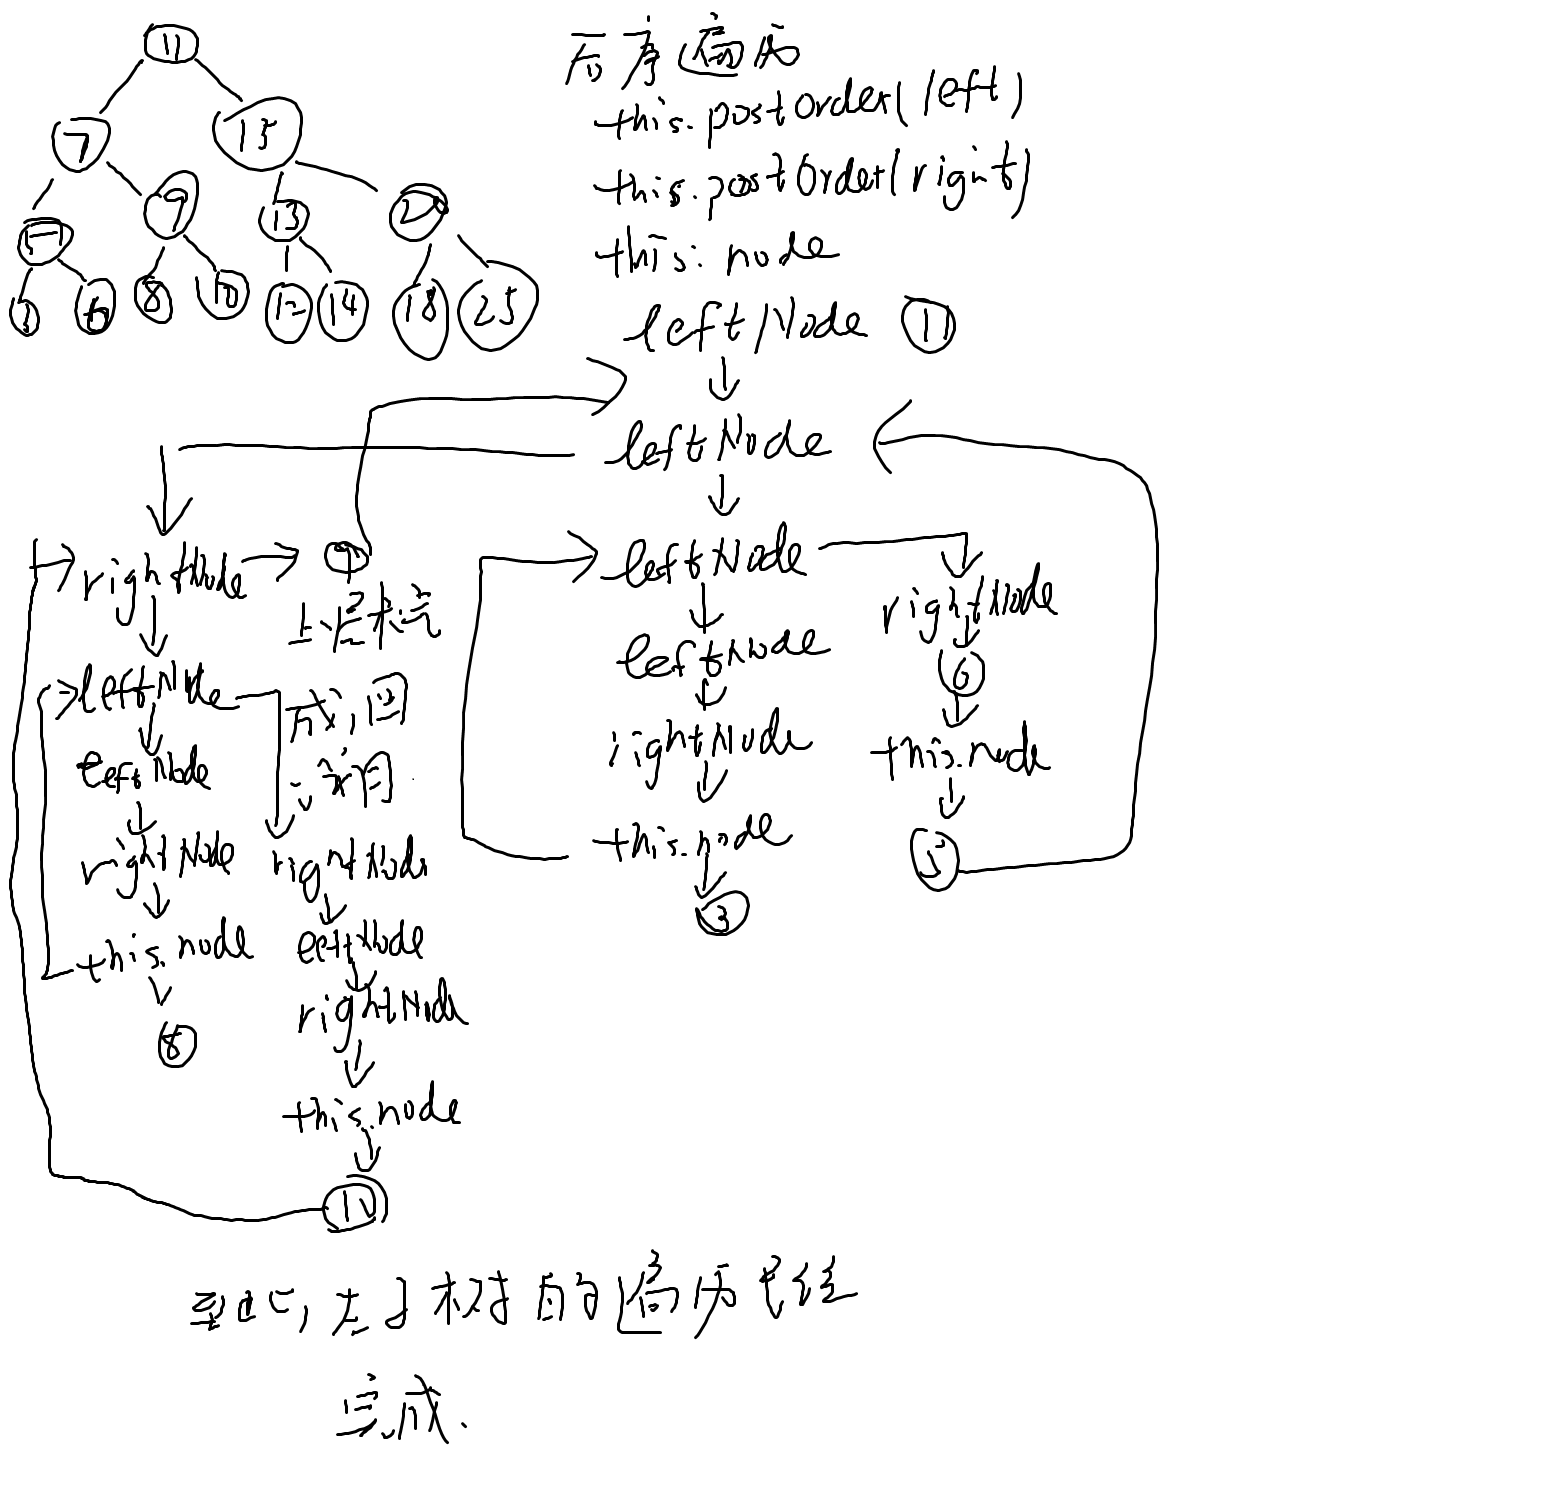 11
7 15
5 9 13 20
3 6 8 10 12 14 18 25
后序遍历
this.postOrder(left)
this.postOrder(right)
this.node
leftNode 11
leftNode
leftNode
leftNode
rightNode
this.node
3
rightNode
6
this.node
5
rightNode 9
上层未完
成,回
访问
leftNode
leftNode
rightNode
this.node
8
rightNode
leftNode
rightNode
this.node
10
到此,左子树的遍历已经
完成.